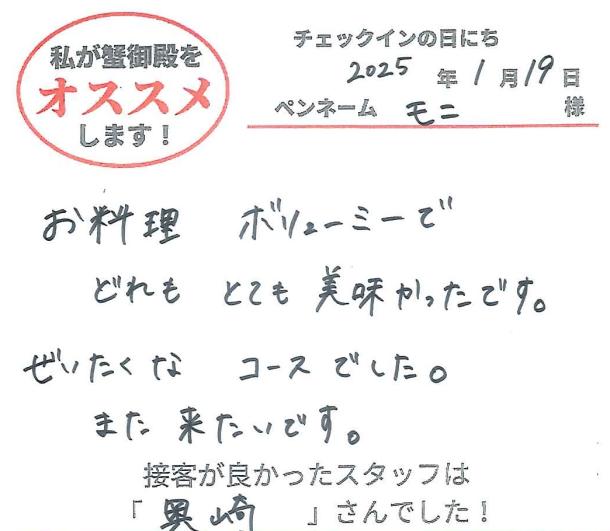 私が蟹御殿を
オススメ
します！
チェックインの日にち
2025年1月19日
ペンネーム モニ 様
お料理 ボリューミーで
どれも とても 美味かったです。
ぜいたくな コースでした。
また 来たいです。
接客が良かったスタッフは
「奥崎」さんでした！